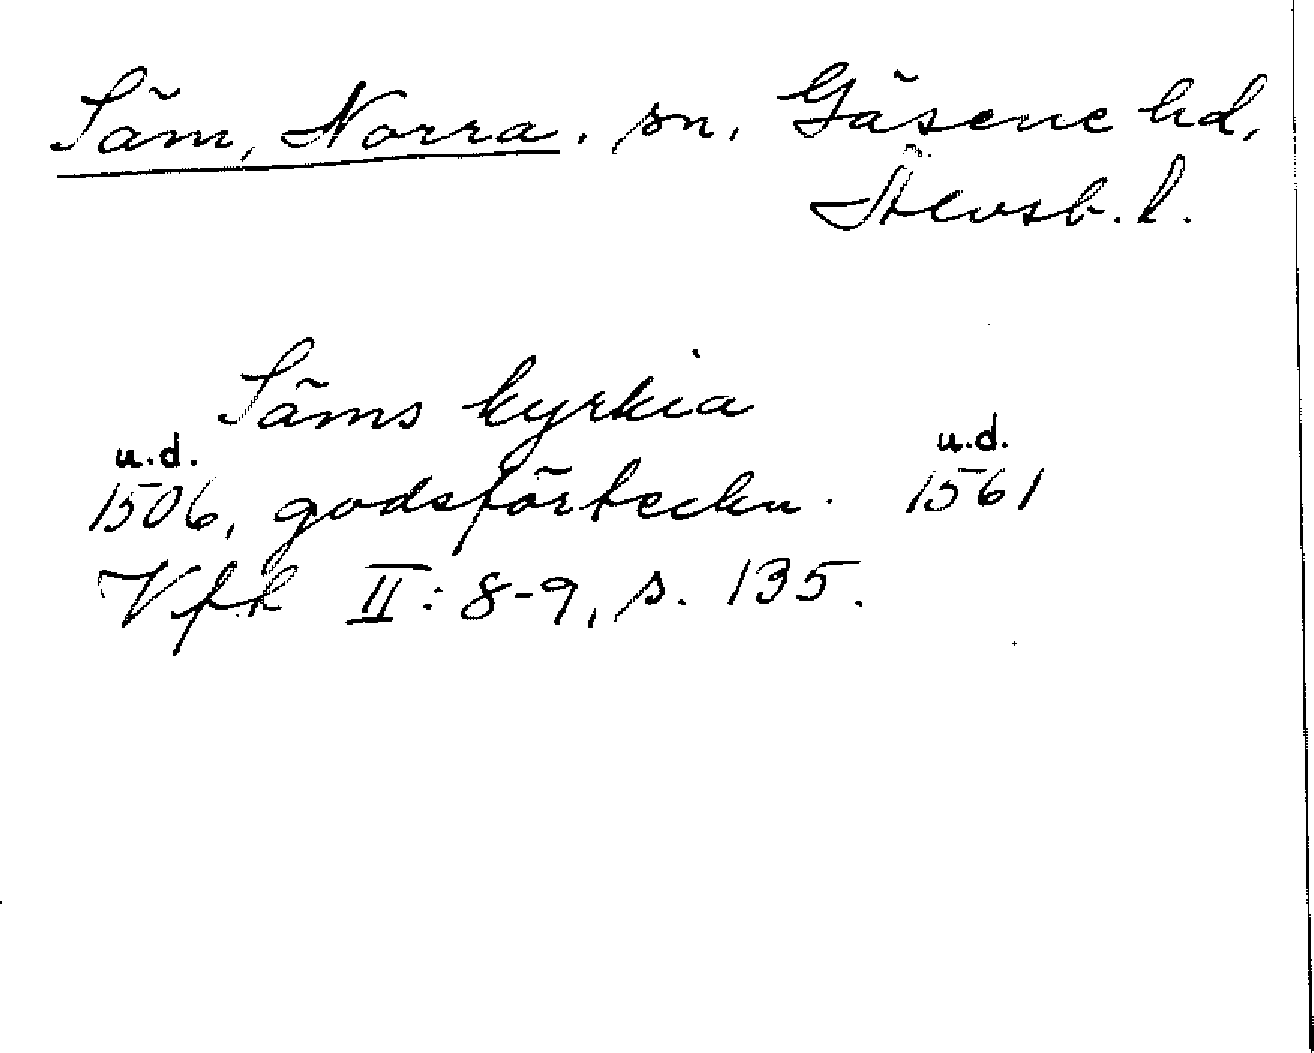 Säm, Norra. sn. Gäsene hd,
Älvsb. l.
Säms kyrkia
u.d. u.d.
1506, godsförteckn. 1561
Vfk II: 8-9, s. 135.